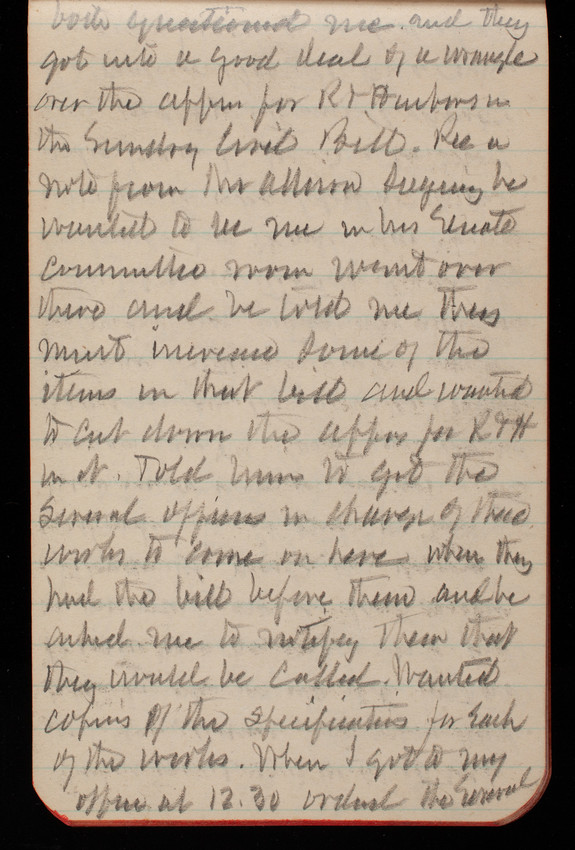 both questioned me and they
got into a good deal of a wrangle
over the appn for R & Harbors in
the Sundry Civil Bill. Rec a
note from Mr Allison saying he
wanted to see me in his Senate
Committee room went over
there and he told me they
must increase some of the
items in that bill and wanted
to cut down the appns for R & H
in it. Told him to get the
several officers in charge of these
works to come on here when they
had the bill before them and he
asked me to notify them that
they would be called. Wanted
copies of the specifications for each
of the works. When I got to my
office at 12.30 ordered the several